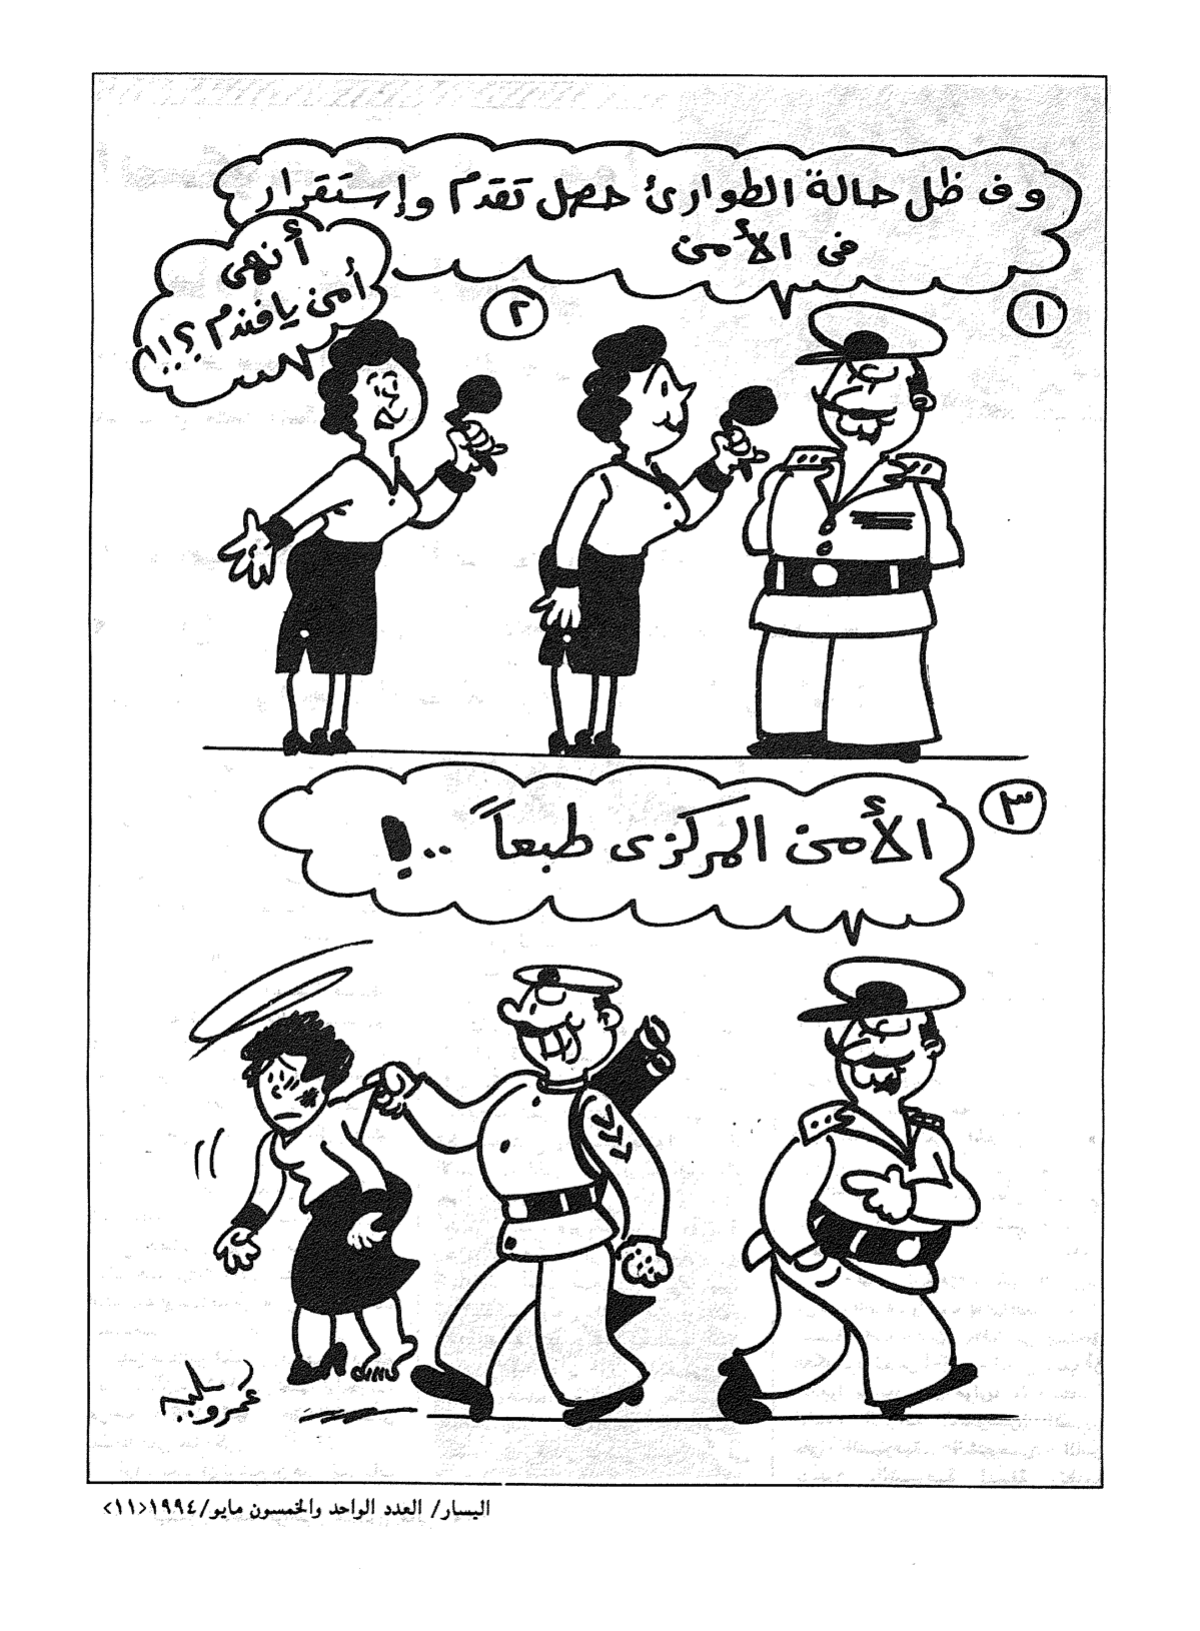 ١
وف ظل حالة الطوارئ حصل تقدم وإستقرار
فى الأمن
٢
أنهى
أمن يافندم ؟!!
٣
الأمن المركزى طبعاً ..!
عمرو سليم
اليسار/ العدد الواحد والخمسون مايو/١٩٩٤<١١>